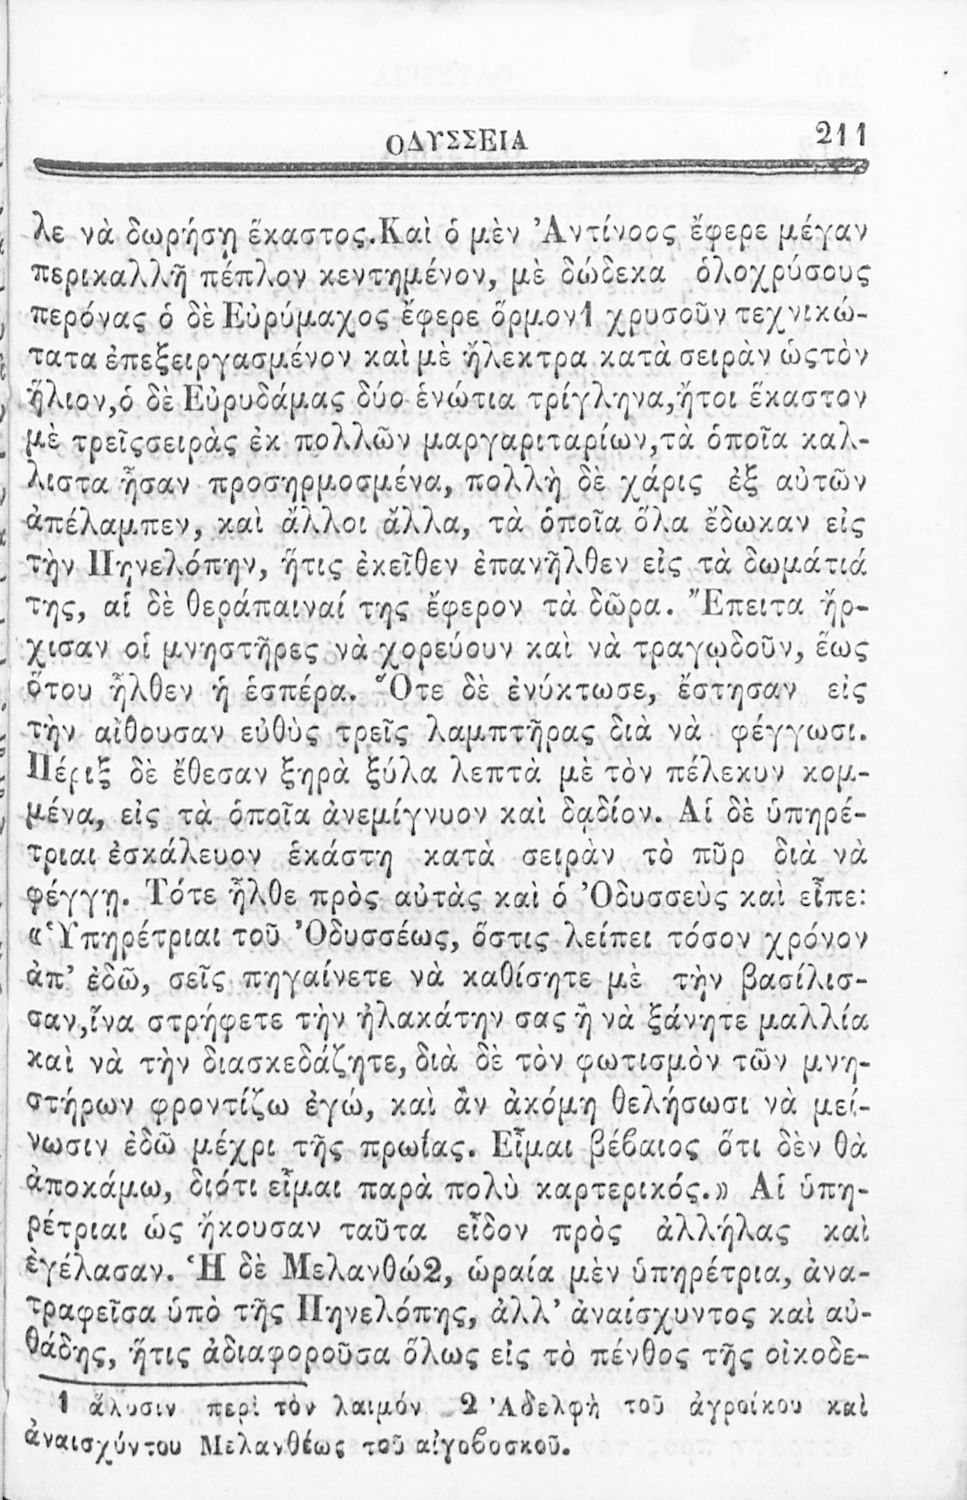 ΟΔΥΣΣΕΙΑ 211
λε νὰ δωρήσῃ ἕκαστος. Καὶ ὁ μὲν Ἀντίνοος ἔφερε μέγαν
περικαλλῆ πέπλον κεντημένον, μὲ δώδεκα ὁλοχρύσους
περόνας ὁ δὲ Εὐρύμαχος ἔφερε ὅρμον1 χρυσοῦν τεχνικώ-
τατα ἐπεξειργασμένον καὶ μὲ ἤλεκτρα κατὰ σειρὰν ὡςτὸν
ἥλιον, ὁ δὲ Εὐρυδάμας δύο ἐνώτια τρίγληνα, ἤτοι ἕκαστον
μὲ τρεῖς σειρὰς ἐκ πολλῶν μαργαριταρίων, τὰ ὁποῖα καλ-
λιστα ἦσαν προσηρμοσμένα, πολλὴ δὲ χάρις ἐξ αὐτῶν
ἀπέλαμπεν, καὶ ἄλλοι ἄλλα, τὰ ὁποῖα ὅλα ἔδωκαν εἰς
τὴν Πηνελόπην, ἥτις ἐκεῖθεν ἐπανῆλθεν εἰς τὰ δωμάτιά
της, αἱ δὲ θεράπαιναί της ἔφερον τὰ δῶρα. Ἔπειτα ἤρ-
χισαν οἱ μνηστῆρες νὰ χορεύουν καὶ νὰ τραγῳδοῦν, ἕως
ὅτου ἦλθεν ἡ ἑσπέρα. Ὅτε δὲ ἐνύκτωσε, ἔστησαν εἰς
τὴν αἴθουσαν εὐθὺς τρεῖς λαμπτῆρας διὰ νὰ φέγγωσι.
Πέριξ δὲ ἔθεσαν ξηρὰ ξύλα λεπτὰ μὲ τὸν πέλεκυν κομ-
μένα, εἰς τὰ ὁποῖα ἀνεμίγνυον καὶ δᾳδίον. Αἱ δὲ ὑπηρέ-
τριαι ἐσκάλευον ἑκάστη κατὰ σειρὰν τὸ πῦρ διὰ νὰ
φέγγῃ. Τότε ἦλθε πρὸς αὐτὰς καὶ ὁ Ὀδυσσεὺς καὶ εἶπε:
«Ὑπηρέτριαι τοῦ Ὀδυσσέως, ὅστις λείπει τόσον χρόνον
ἀπ’ ἐδῶ, σεῖς πηγαίνετε νὰ καθίσητε μὲ τὴν βασίλισ-
σαν, ἵνα στρήφετε τὴν ἠλακάτην σας ἢ νὰ ξάνητε μαλλία
καὶ νὰ τὴν διασκεδάζητε, διὰ δὲ τὸν φωτισμὸν τῶν μνη-
στήρων φροντίζω ἐγώ, καὶ ἂν ἀκόμη θελήσωσι νὰ μεί-
νωσιν ἐδῶ μέχρι τῆς πρωίας. Εἶμαι βέβαιος ὅτι δὲν θὰ
ἀποκάμω, διότι εἶμαι παρὰ πολὺ καρτερικός.» Αἱ ὑπη-
ρέτριαι ὡς ἤκουσαν ταῦτα εἶδον πρὸς ἀλλήλας καὶ
ἐγέλασαν. Ἡ δὲ Μελανθώ2, ὡραία μὲν ὑπηρέτρια, ἀνα-
τραφεῖσα ὑπὸ τῆς Πηνελόπης, ἀλλ’ ἀναίσχυντος καὶ αὐ-
θάδης, ἥτις ἀδιαφοροῦσα ὅλως εἰς τὸ πένθος τῆς οἰκοδε-
1 ἅλυσιν περὶ τὸν λαιμόν 2 Ἀδελφὴ τοῦ ἀγροίκου καὶ
ἀναισχύντου Μελανθέως τοῦ αἰγοβοσκοῦ.